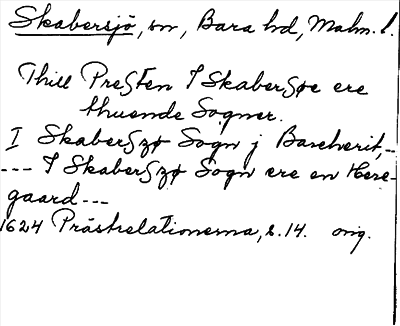 Skabersjö, sn, Bara hd, Malm. l.
Thill Presten I Skabersøe ere
thuende Sogner.
I Skaberszø Sogn j Bareherit,--
--- I Skaberszø Sogn ere en Here-
gaard---
1624 Prästrelationerna, s. 14. orig.